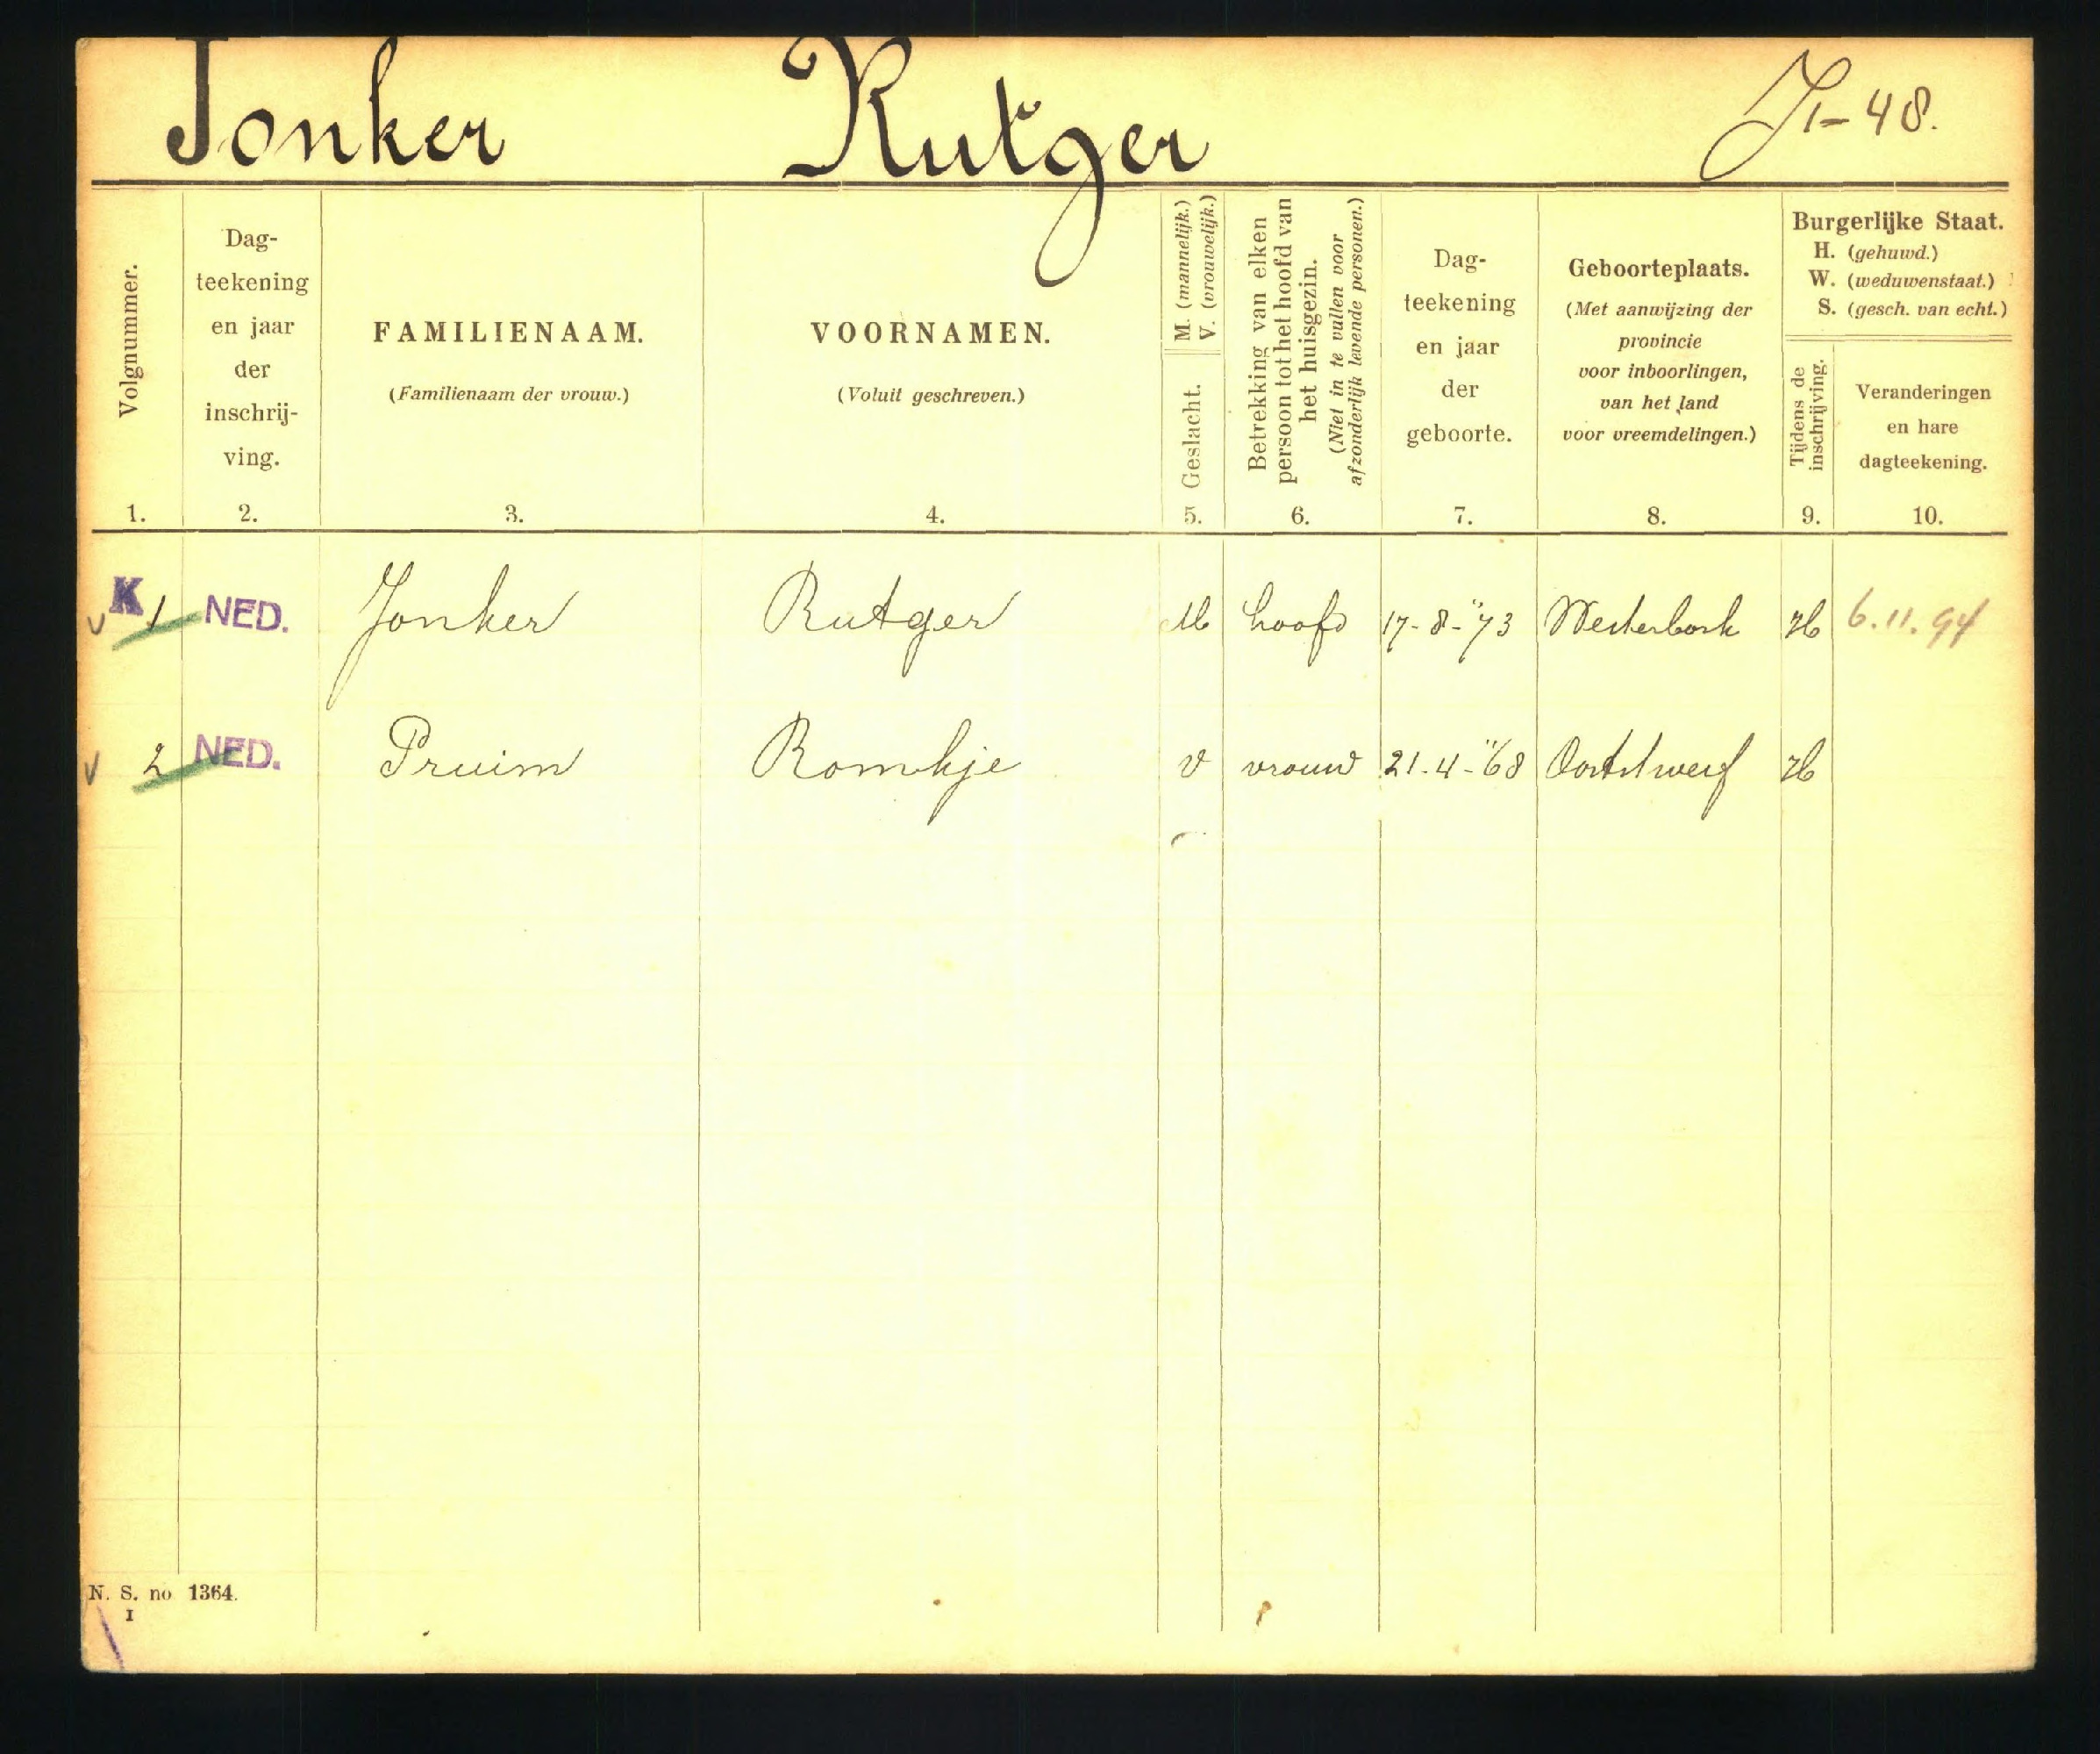 Jonker Rutger J1-48.
Volgnummer.
1.
Dag-
teekening
en jaar
der
inschrij-
ving.
2.
FAMILIENAAM.
(Familienaam der vrouw.)
3.
VOORNAMEN.
(Voluit geschreven.)
4.
M. (mannelijk.)
V. (vrouwelijk.)
Geslacht.
5.
Betrekking van elken
persoon tot het hoofd van
het huisgezin.
(Niet in te vullen voor
afzonderlijk levende personen.)
6.
Dag-
teekening
en jaar
der
geboorte.
7.
Geboorteplaats.
(Met aanwijzing der
provincie
voor inboorlingen,
van het land
voor vreemdelingen.)
8.
Burgerlijke Staat.
H. (gehuwd.)
W. (weduwenstaat.)
S. (gesch. van echt.)
Tijdens de
inschrijving.
9.
Veranderingen
en hare
dagteekening.
10.
K 1 NED. Jonker Rutger M hoofd 17-8-"73 Westerbork H 6.11.94
2 NED. Pruim Romkje v vrouw 21-4-"68 Ooststwerf H
N. S. no 1364.
I